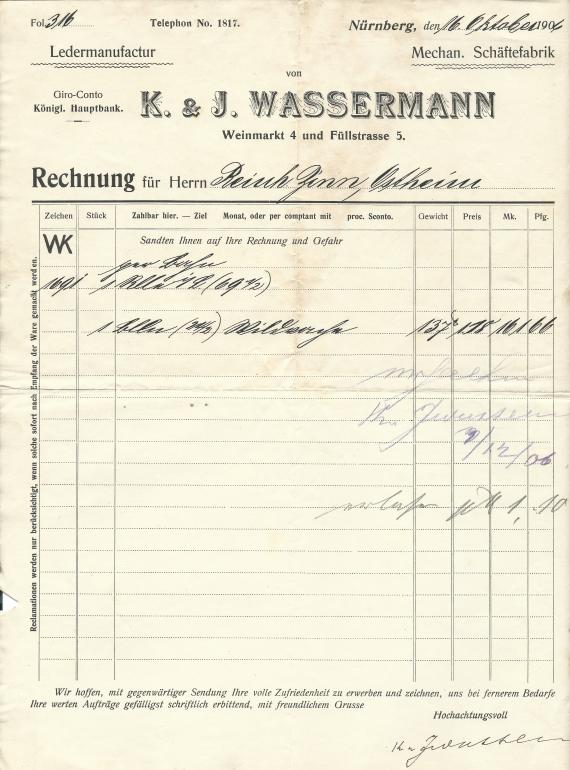 Fol. 316 Telephon No. 1817. Nürnberg, den 16. Oktober 190
Ledermanufactur Mechan. Schäftefabrik
von
Giro-Conto
Königl. Hauptbank.
K. & J. WASSERMANN
Weinmarkt 4 und Füllstrasse 5.
Rechnung für Herrn Ostheim
Zeichen Stück Zahlbar hier. — Ziel Monat, oder per comptant mit proc. Sconto. Gewicht Preis Mk. Pfg.
WK Sandten Ihnen auf Ihre Rechnung und Gefahr
per Bahn
1691 1
1 137 118 161 66
9/12/06
1 10
Reclamationen werden nur berücksichtigt, wenn solche sofort nach Empfang der Ware gemacht werden.
Wir hoffen, mit gegenwärtiger Sendung Ihre volle Zufriedenheit zu erwerben und zeichnen, uns bei fernerem Bedarfe
Ihre werten Aufträge gefälligst schriftlich erbittend, mit freundlichem Grusse
Hochachtungsvoll